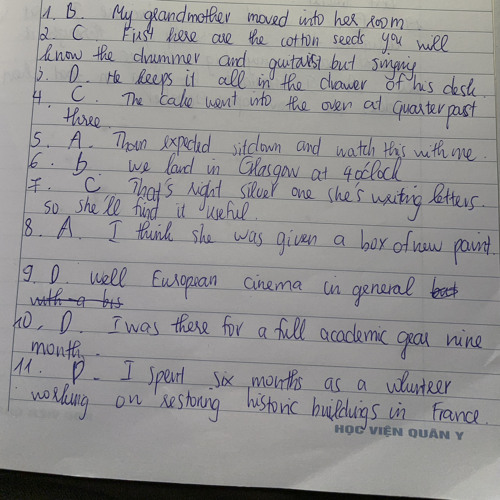 1. B. My grandmother moved into her room
2. C. First here are the cotton seeds you will
know the drummer and guitarist but singing
3. D. He keeps it all in the drawer of his desk.
4. C. The cake went into the oven at quarter past
three
5. A. Than expected sitdown and watch this with me.
6. b. we land in Glasgow at 4o'clock
7. C. That's right silver one she's writing letters.
so she'll find it useful.
8. A. I think she was given a box of new paint.
9. D. well European cinema in general but
with a bis
10. D. I was there for a full academic gear nine
month.
11. D. I spent six months as a volunteer
working on restoring historic buildings in France.
HỌC VIỆN QUÂN Y